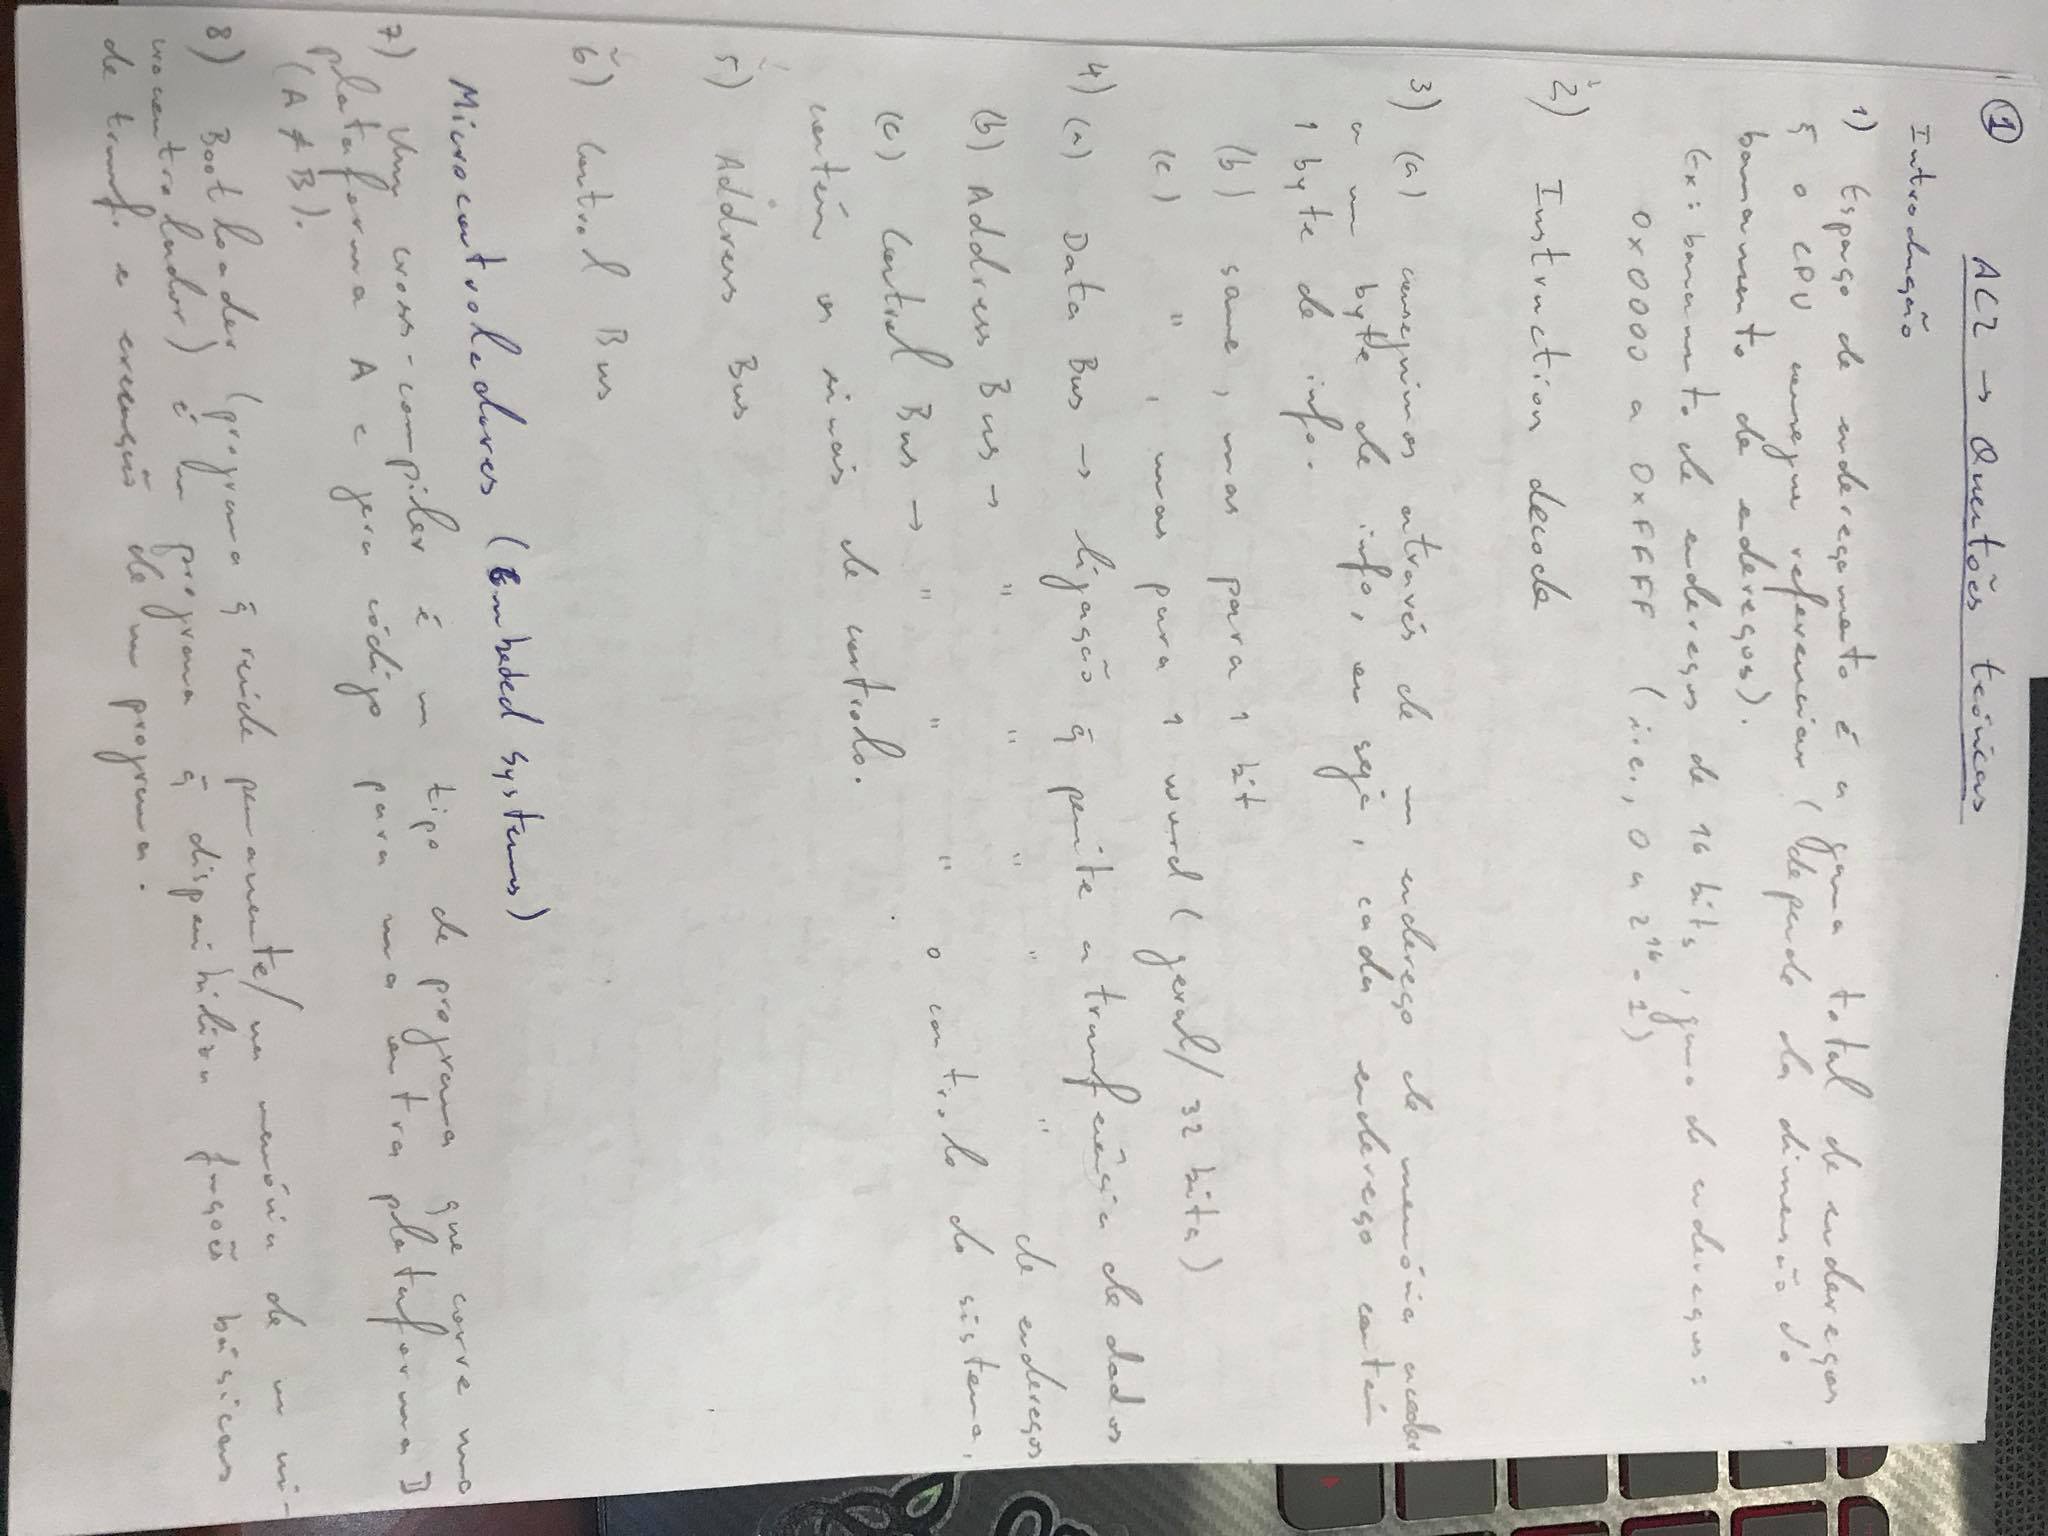 1
AC2 → Questões teóricas
Introdução
1) Espaço de endereçamento é a gama total de endereços
q̃ o CPU consegue referenciar (depende da dimensão do
barramento de endereços).
Ex: barramento de endereços de 16 bits, gama de endereços:
0x0000 a 0xFFFF (i.e., 0 a 2^16 - 1)
2) Instruction decode
3) (a) conseguimos através de um endereço de memória aceder
a um byte de info, ou seja, cada endereço contém
1 byte de info.
(b) same, mas para 1 bit
(c) " , mas para 1 word (geral/ 32 bits)
4) (a) Data Bus → ligação q̃ permite a transferência de dados
(b) Address Bus → " " " " " de endereços
(c) Control Bus → " " " o controlo do sistema,
contém os sinais de controlo.
5) Address Bus
6) Control Bus
Microcontroladores (Embeded Systems)
7) Um cross-compiler é um tipo de programa que corre numa
plataforma A e gera código para uma outra plataforma B
(A ≠ B).
8) Bootloader (programa q̃ reside permanente/ na memória de um mi-
crocontrolador) é um programa q̃ disponibiliza funções básicas
de transf. e execução de um programa.